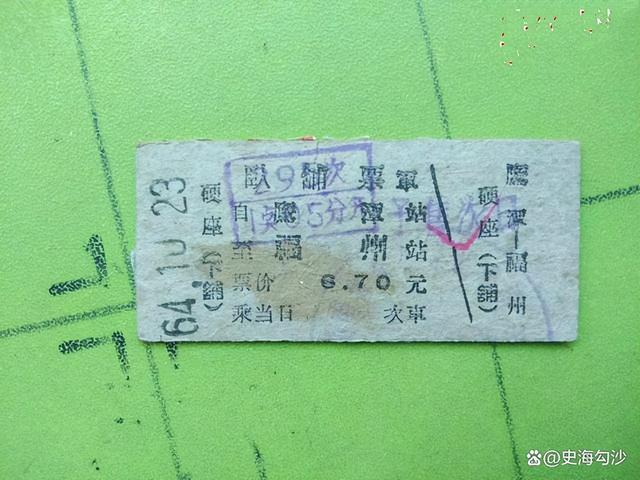 64.10 23
硬座(下鋪)
臥鋪票
軍
自鷹潭站
至福州站
票价 6.70 元
乘当日 次車
鷹潭—福州
硬座(下鋪)
次
1点05分开
@史海勾沙